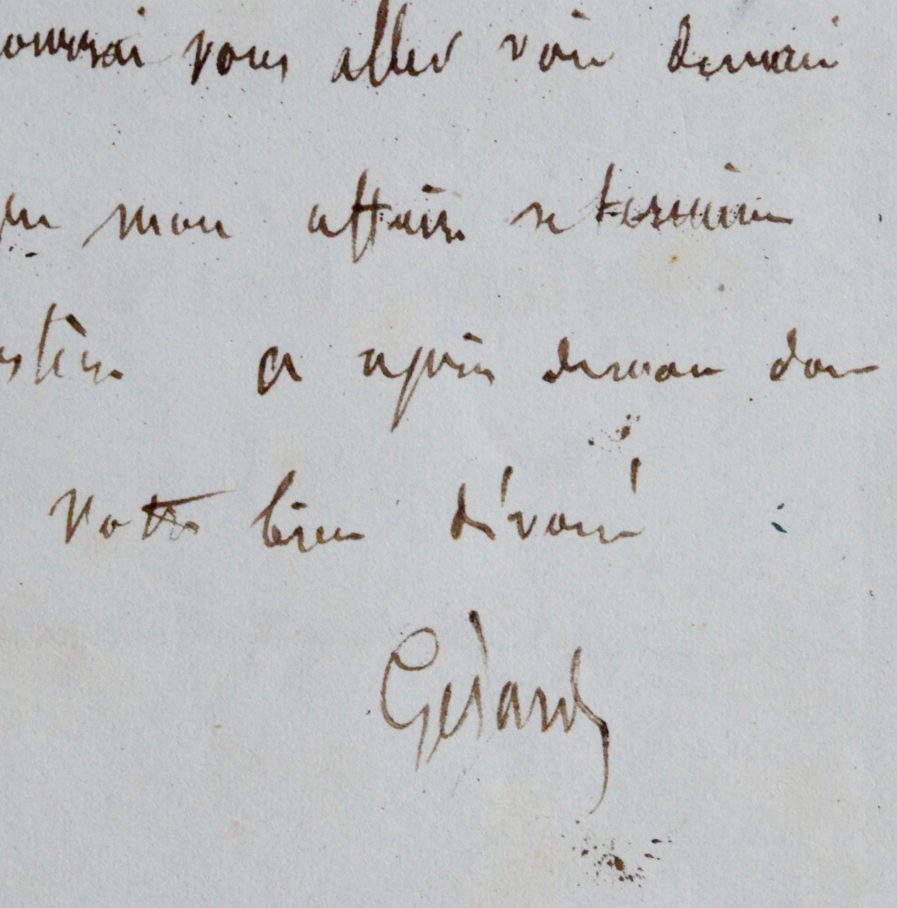 pourrai vous aller voir demain
que mon affaire se termine
a après demain donc
Votre bien dévoué
Gérard